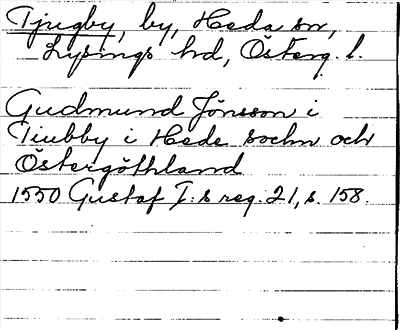 Tjugby, by, Heda sn,
Lysings hd, Österg. l.
Gudmund Jönsson i
Tiubby i Hede sochn och
Östergöthland
1550 Gustaf I:s reg. 21, s. 158.